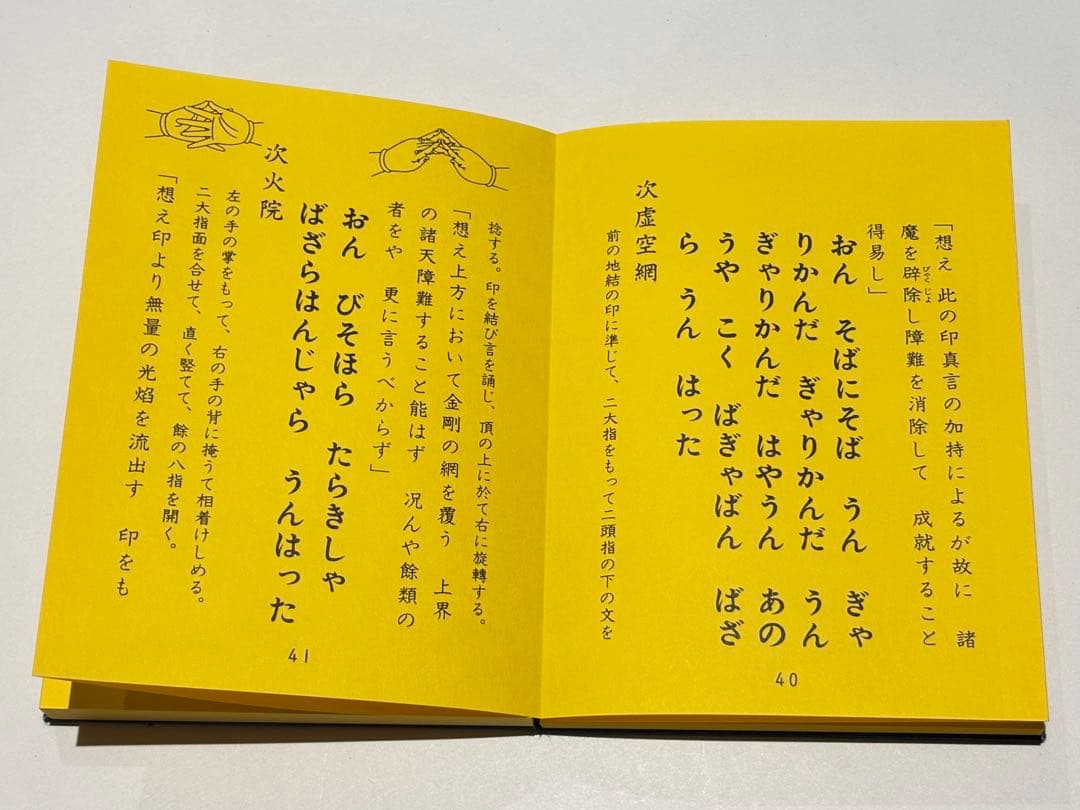 「想え　此の印真言の加持によるが故に　諸
魔を辟除し障難を消除して　成就すること
びゃくじょ
得易し」
おん　そばにそば　うん　ぎゃ
りかんだ　ぎゃりかんだ　うん
ぎゃりかんだ　はやうん　あの
うや　こく　ばぎゃばん　ばざ
ら　うん　はった
次虚空網
前の地結の印に準じて、二大指をもって二頭指の下の文を
40
捻する。印を結び言を誦じ、頂の上に於て右に旋轉する。
「想え上方において金剛の網を覆う　上界
の諸天障難すること能はず　况んや餘類の
者をや　更に言うべからず」
おん　びそほら　たらきしゃ
ばざらはんじゃら　うんはった
次火院
左の手の掌をもって、右の手の背に掩うて相着けしめる。
二大指面を合せて、直く竪てて、餘の八指を開く。
「想え印より無量の光焰を流出す　印をも
41